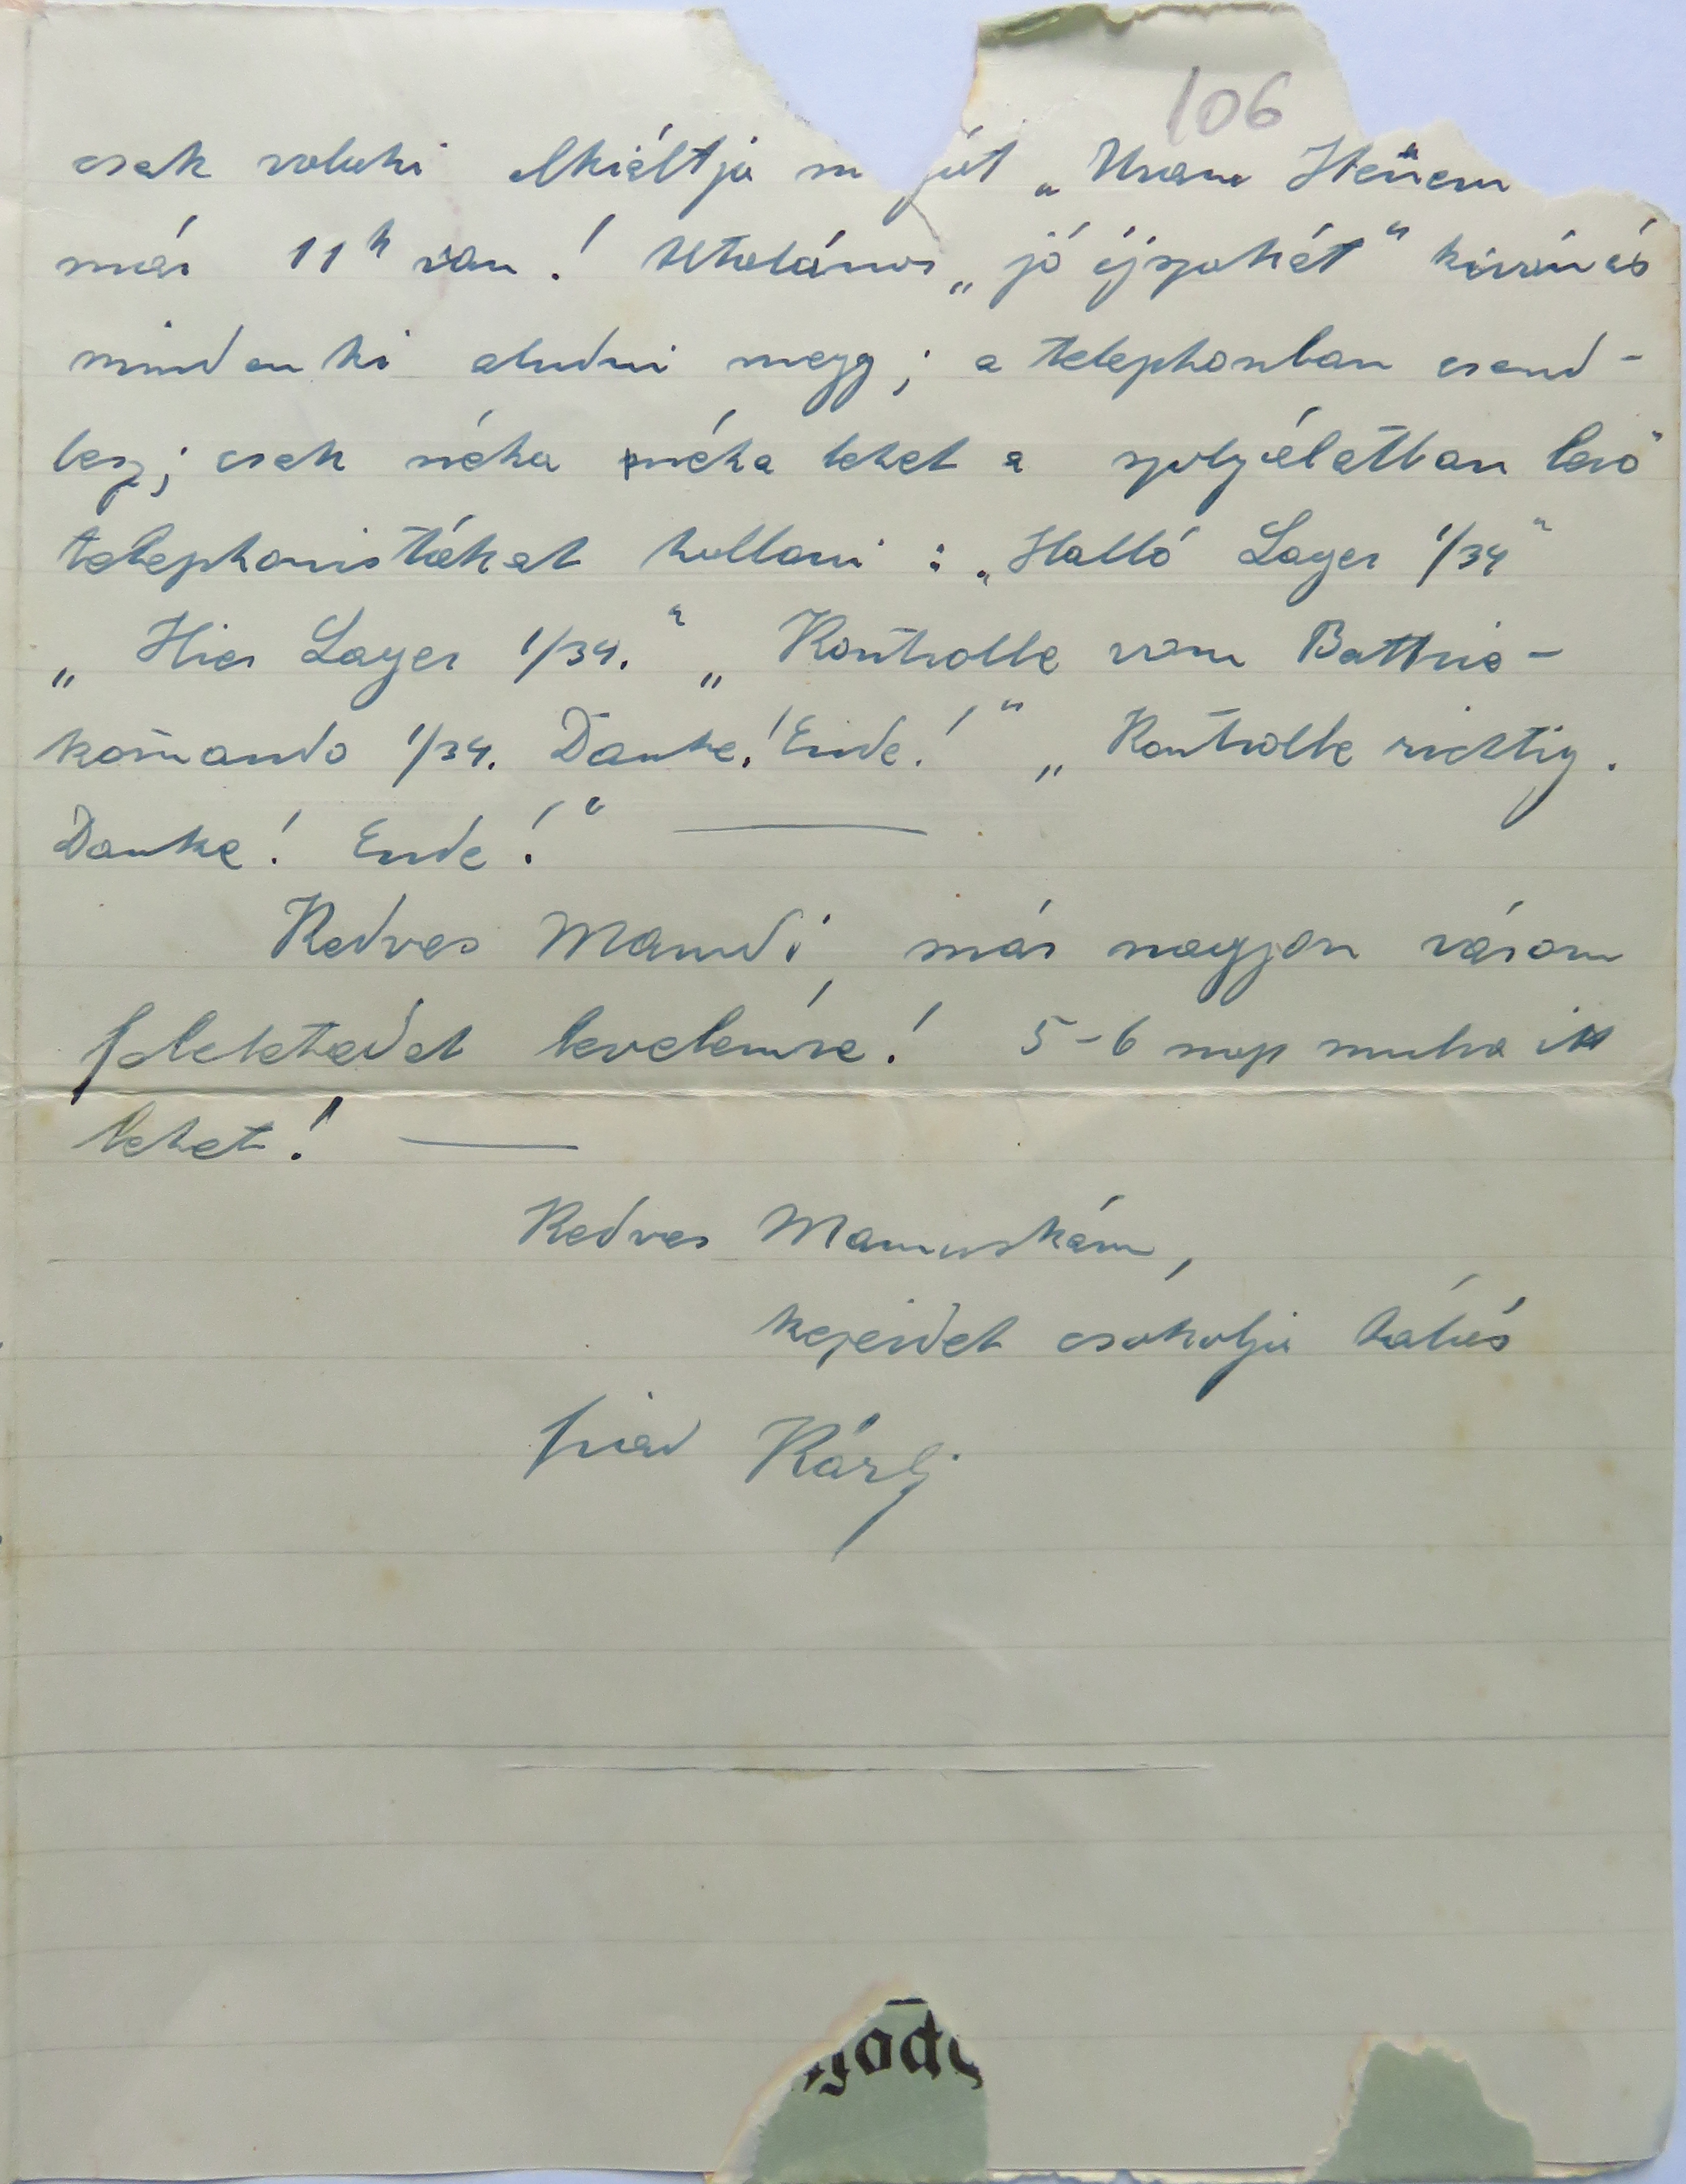 106
csak valaki elkiáltja m ját „Uram Istenem
már 11h van! Utolános „jó éjszakát" kivánás
mindenki aludni megy; a telephonban csend-
lesz; csak néha néha lehet a szolgálatban levő
telephonistákat hallani: „Halló Lager 1/34"
„Hier Lager 1/34." „Kontrolle vom Battrie-
kom̄ando 1/34. Danke! Ende!" „Kontrolle richtig.
Danke! Ende!"
Kedves Mamdi, már nagyon várom
feleleteded levelemre! 5-6 nap mulva itt
lehet!
Kedves Mamuskám,
kezeidet csokolja hálás
fiad Károly